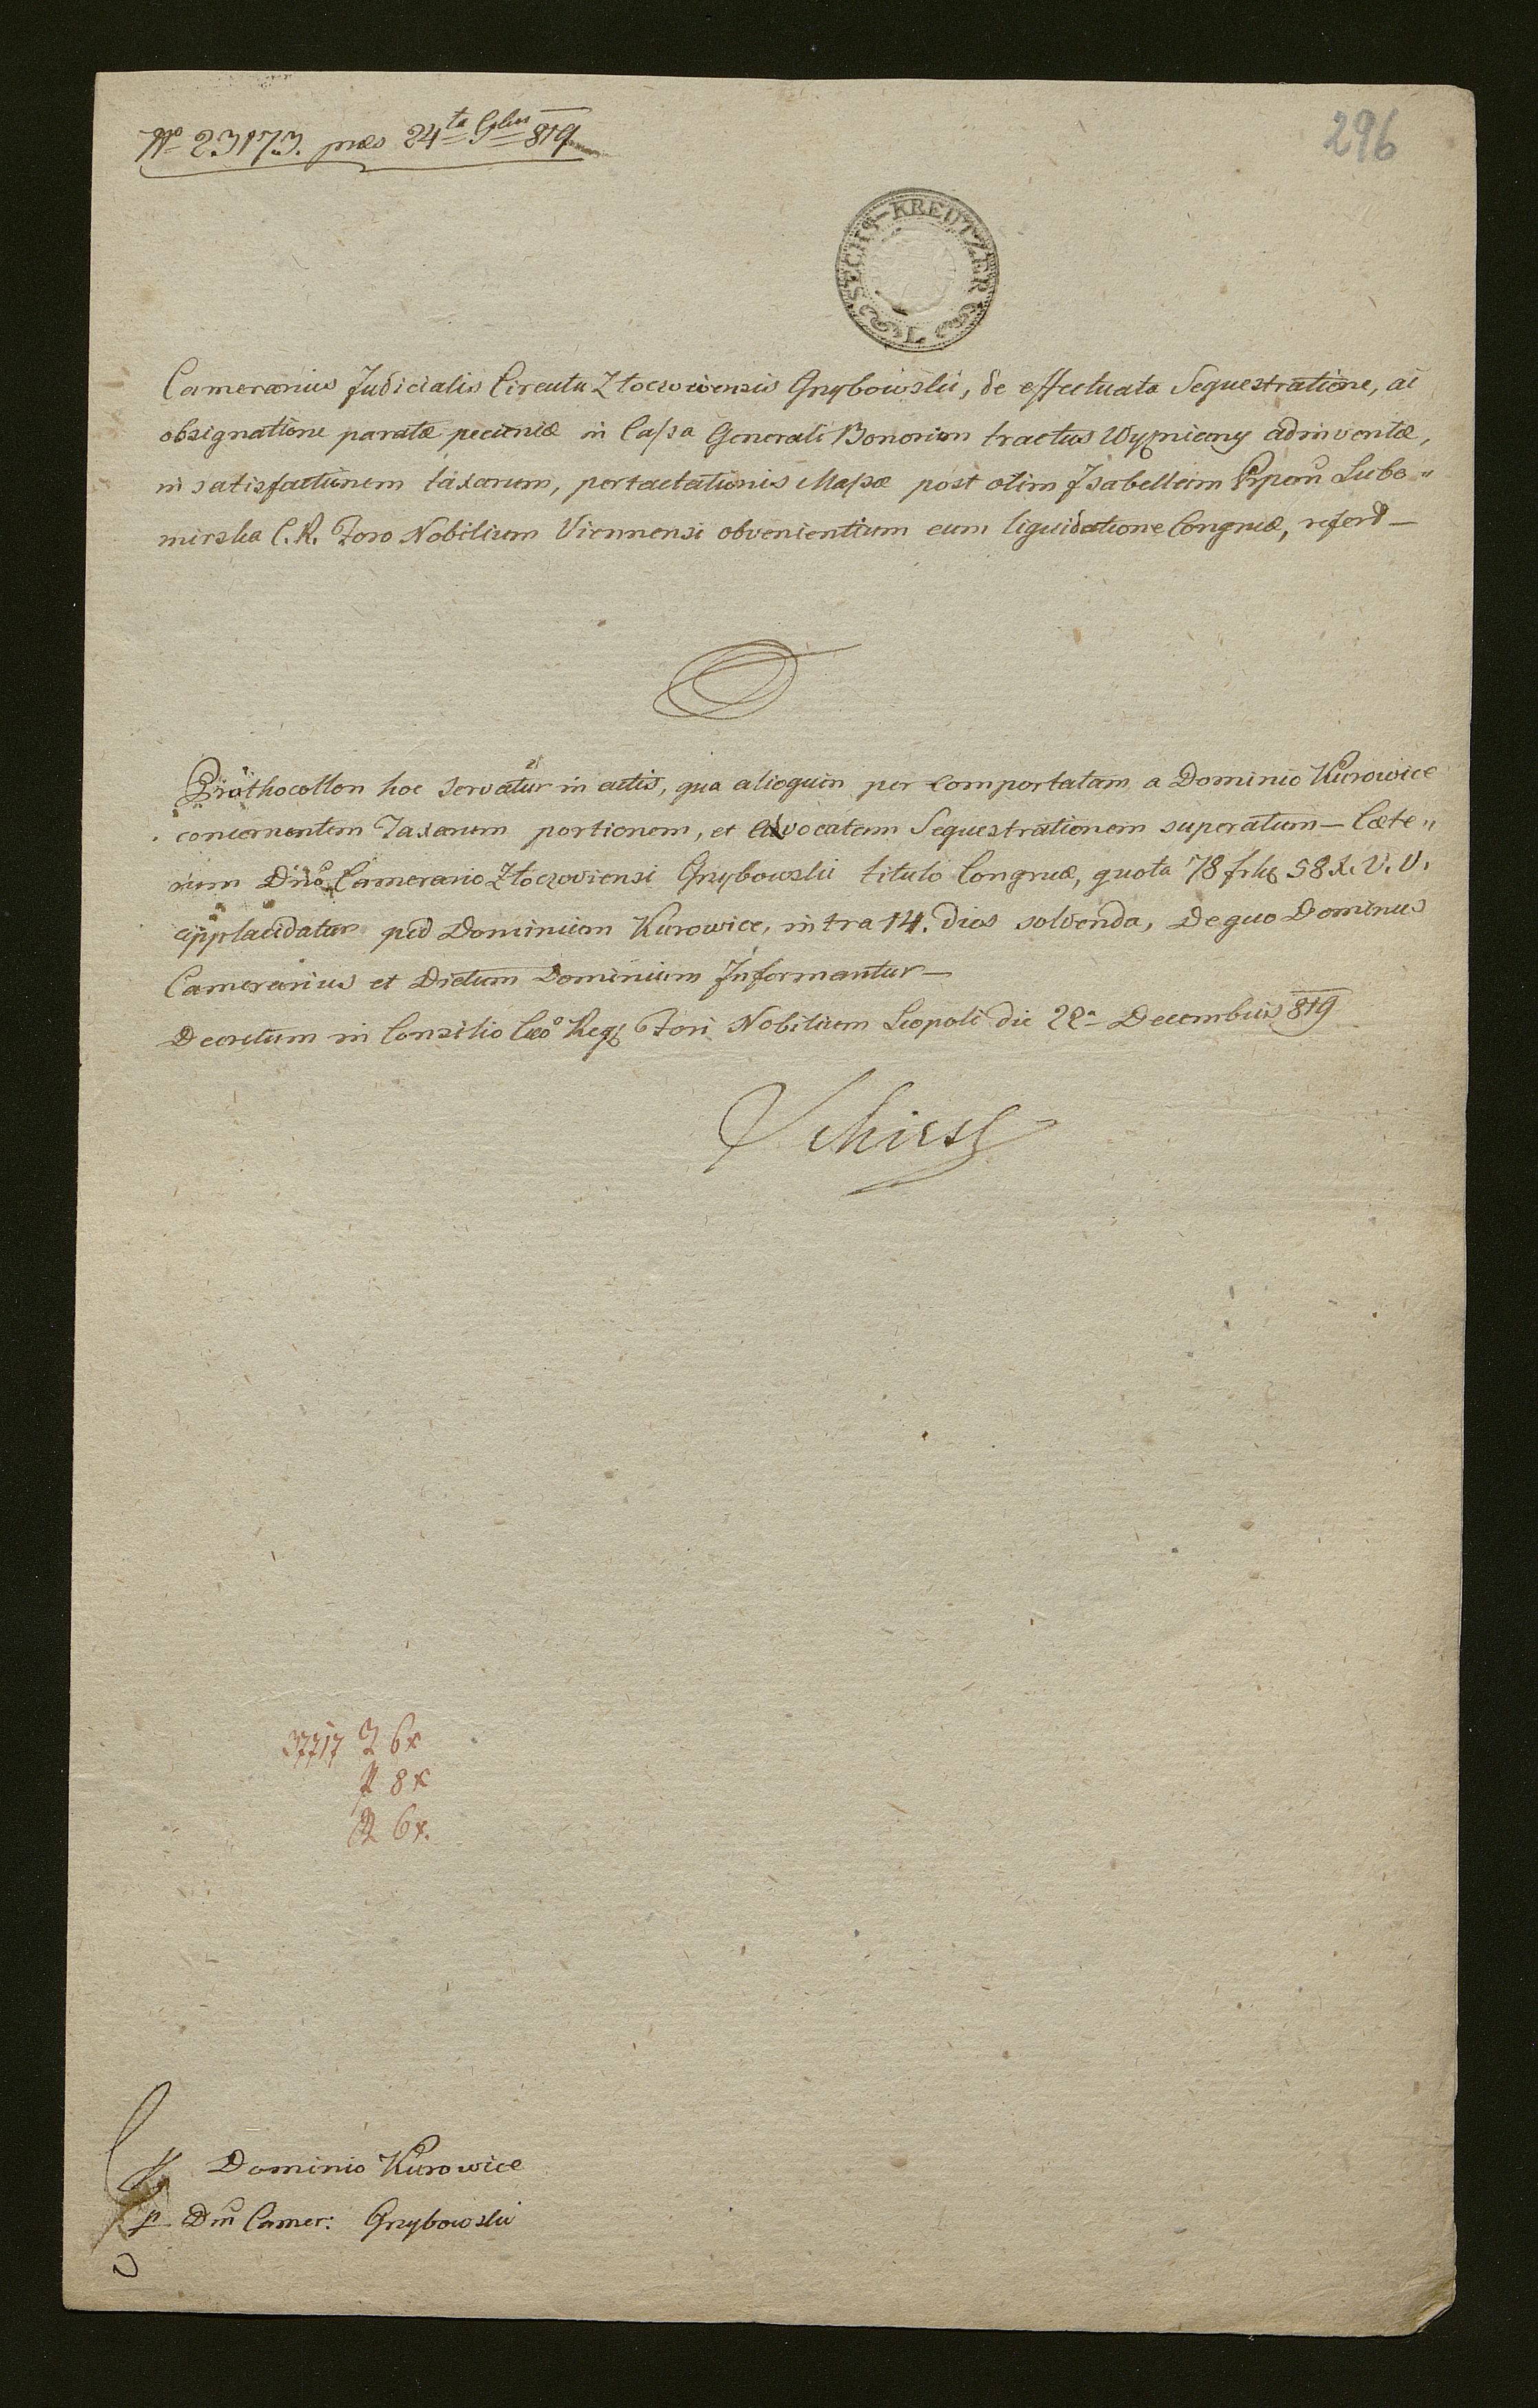 No 23173. præs 24ta 9bris 819
296
SECHS-KREUTZER
Camerarius Judicialis Circuli Złoczoviensis Grzybowski, de effectuata Sequestratione, ac
obsignatione paratæ pecuniæ in Cassa Generali Bonorum tractus Wyzniany adinventæ,
in satisfactionem taxarum, pertractationis Massæ post olim Isabellam Ppem Lubo„
mirska C. R. Foro Nobilium Viennensi obvenientium cum liquidatione Congruæ, refert—
Prothocollon hoc servatur in actis, qua alioquin per comportatam a Dominio Kurowice
concernentem Taxarum portionem, et advocatam Sequestrationem superatum— Cæte„
rum Dno Camerario Złoczoviensi Grzybowski titulo Congruæ, quota 78 frhg 58 x. V. V.
applacidatur per Dominium Kurowice, intra 14. dies solvenda, De quo Dominus
Camerarius et Dictum Dominium Informantur—
Decretum in Consilio Cæo Reg Fori Nobilium Leopoli die 22a Decembris 819
37717 6x
8x
6x.
Dominio Kurowice
Dno Camer: Grzybowski